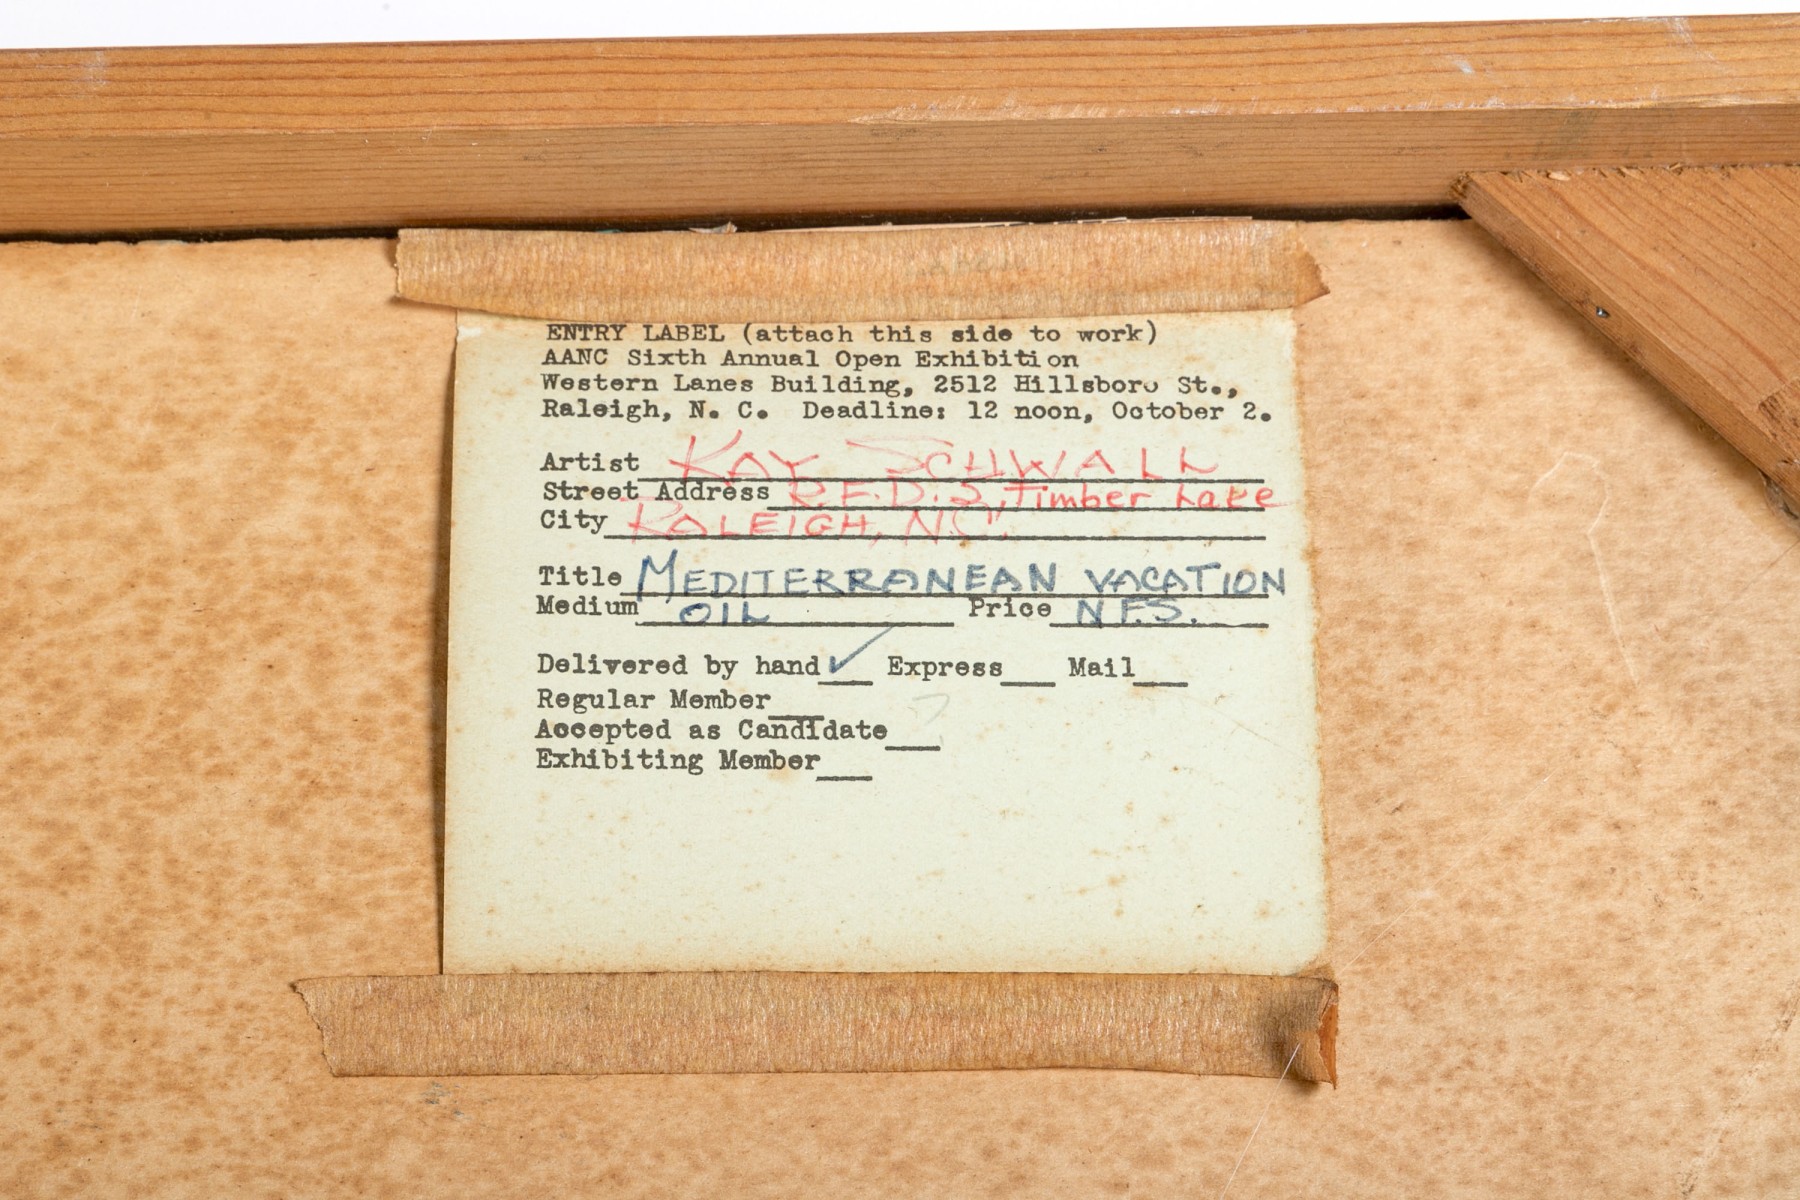 ENTRY LABEL (attach this side to work)
AANC Sixth Annual Open Exhibition
Western Lanes Building, 2512 Hillsboro St.,
Raleigh, N. C. Deadline: 12 noon, October 2.
Artist KAY SCHWALL
Street Address R.F.D. 2, Timber Lake
City RALEIGH, NC.
Title MEDITERRANEAN VACATION
Medium OIL Price N.F.S.
Delivered by hand ✓ Express Mail
Regular Member
Accepted as Candidate
Exhibiting Member